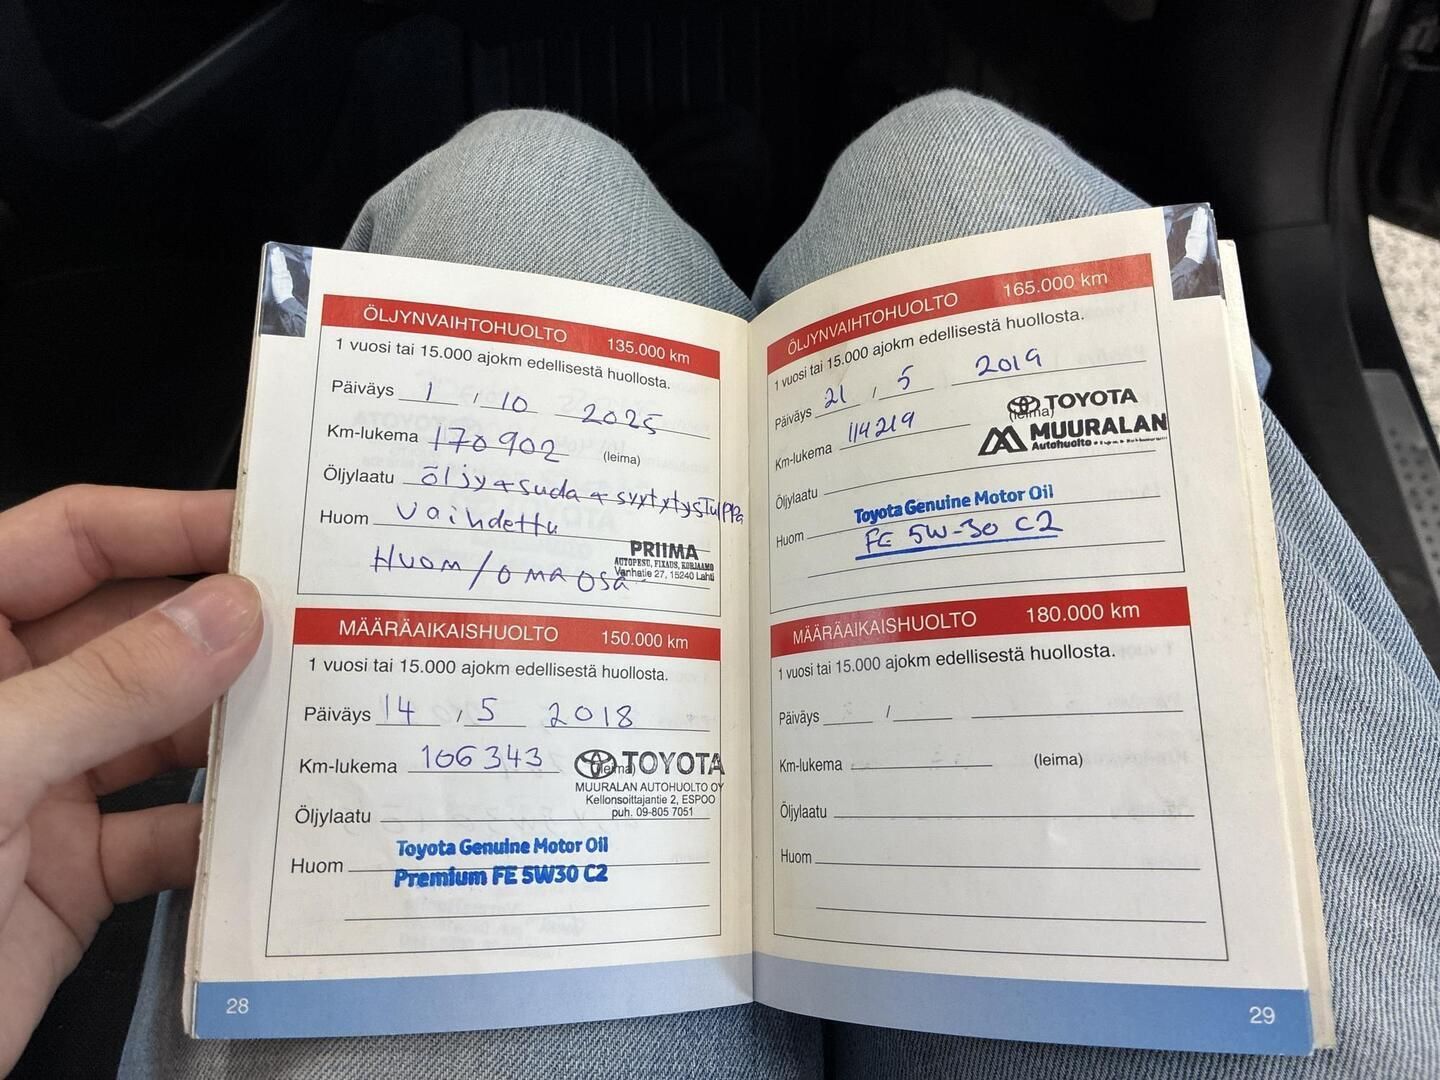 ÖLJYNVAIHTOHUOLTO 135.000 km
1 vuosi tai 15.000 ajokm edellisestä huollosta.
Päiväys 1 / 10 2025
Km-lukema 170 902 (leima)
Öljylaatu öljy + suda + sytytystulppa
Huom vaihdettu
Huom / oma osa
PRIIMA
AUTOPESU, FIXAUS, KORJAAMO
Vanhatie 27, 15240 Lahti
MÄÄRÄAIKAISHUOLTO 150.000 km
1 vuosi tai 15.000 ajokm edellisestä huollosta.
Päiväys 14 / 5 2018
Km-lukema 106 343 (leima)
TOYOTA
MUURALAN AUTOHUOLTO OY
Kellonsoittajantie 2, ESPOO
puh. 09-805 7051
Öljylaatu
Toyota Genuine Motor Oil
Huom
Premium FE 5W30 C2
28
ÖLJYNVAIHTOHUOLTO 165.000 km
1 vuosi tai 15.000 ajokm edellisestä huollosta.
Päiväys 21 / 5 2019
Km-lukema 114219 (leima)
TOYOTA
MUURALAN
Autohuolto
Öljylaatu
Toyota Genuine Motor Oil
Huom FE 5W-30 C2
MÄÄRÄAIKAISHUOLTO 180.000 km
1 vuosi tai 15.000 ajokm edellisestä huollosta.
Päiväys /
Km-lukema (leima)
Öljylaatu
Huom
29